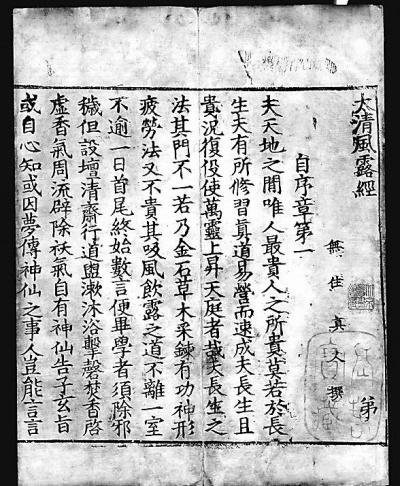 太清風露經
無住真人撰
自序章第一
夫天地之間唯人最貴人之所貴莫若於長
生夫有所修習眞道易營而速成夫長生且
貴況復役使萬靈上昇天庭者哉夫長生之
法其門不一若乃金石草木采鍊有功神形
疲勞法又不貴其吸風飲露之道不離一室
不逾一日首尾終始數言便畢學者須除邪
穢但設壇清齋行道盥漱沐浴擊磬焚香啓
虛香氣周流辟除祅氣自有神仙告子玄旨
或自心知或因夢傳神仙之事人豈能言言